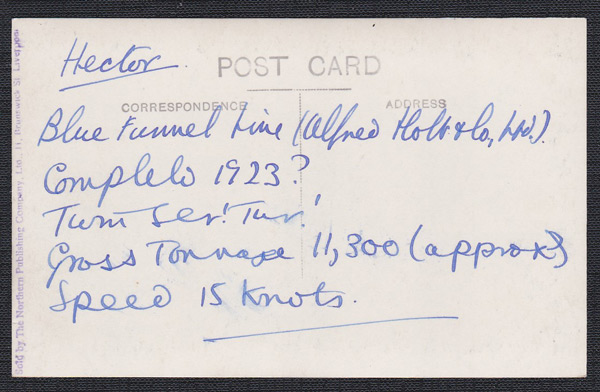 Hector
POST CARD
CORRESPONDENCE
ADDRESS
Blue Funnel Line (Alfred Holt & Co, Ltd.).
Completed 1923?
Twin Scr! Tur!
Gross Tonnage 11,300 (approx)
Speed 15 Knots.
Sold by The Northern Publishing Company, Ltd., 11, Brunswick St. Liverpool